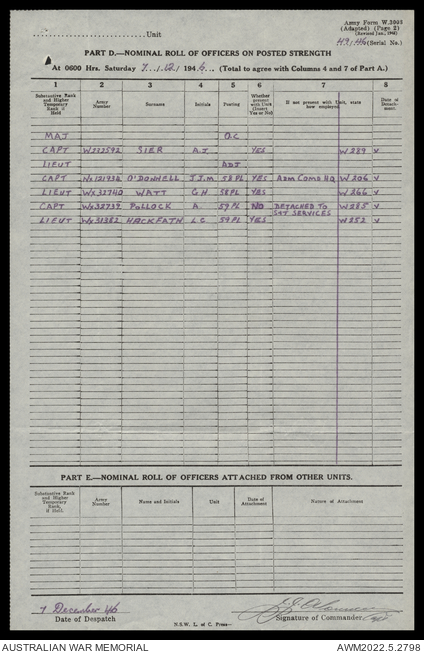 Army Form W.3008
(Adapted) (Page 2)
Unit
49/46 (Serial No.)
PART D.—NOMINAL ROLL OF OFFICERS ON POSTED STRENGTH
At 0600 Hrs. Saturday 7 / 12 / 1946. (Total to agree with Columns 4 and 7 of Part A.)
1 2 3 4 5 6 7 8
Substantive Rank and Higher Temporary Rank if Held Army Number Surname Initials Posting Whether present with Unit (Insert Yes or No) If not present with Unit, state how employed Date of Detachment
MAJ O.C
CAPT SIER A.J. YES W289 v
LIEUT ADJ
CAPT O'DONNELL J.J.M 58PL YES Adm Comd HQ W206 v
LIEUT WX32740 WATT G H 58PL YES W266 v
CAPT WX32739 POLLOCK A. 59PL NO DETACHED TO S&T SERVICES W285 v
LIEUT WX31382 HACKFATH L C 59PL YES W252 v
PART E.—NOMINAL ROLL OF OFFICERS ATTACHED FROM OTHER UNITS.
Substantive Rank and Higher Temporary Rank, if Held. Army Number Name and Initials Unit Date of Attachment Nature of Attachment
7 December 46
Date of Despatch Signature of Commander
N.S.W. L. of C. Press—
AUSTRALIAN WAR MEMORIAL AWM2022.5.2798